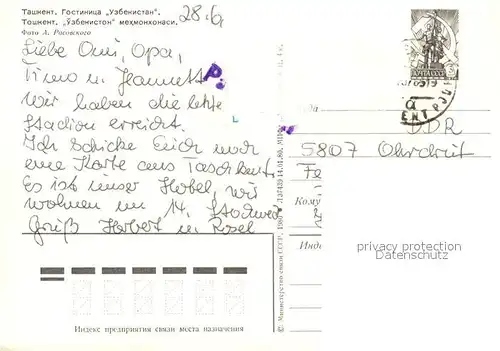 Ташкент. Гостиница „Узбекистан".
Тошкент. „Ўзбекистон" меҳмонхонаси.
Фото А. Расовского
28.6
Liebe Omi, Opa,
Timo u. Jeannett
Wir haben die letzte
Stadion erreicht.
Ich schicke Euch noch
eine Karte aus Taschkent.
Es ist unser Hotel, wir
wohnen im 14. Stockwerk
Gruß Herbert u. Rosel
DDR
5807 Ohrdruf
Fe
Кому
Инде
privacy protection
Datenschutz
© Министерство связи СССР, 1980
14.01.80
Индекс предприятия связи места назначения